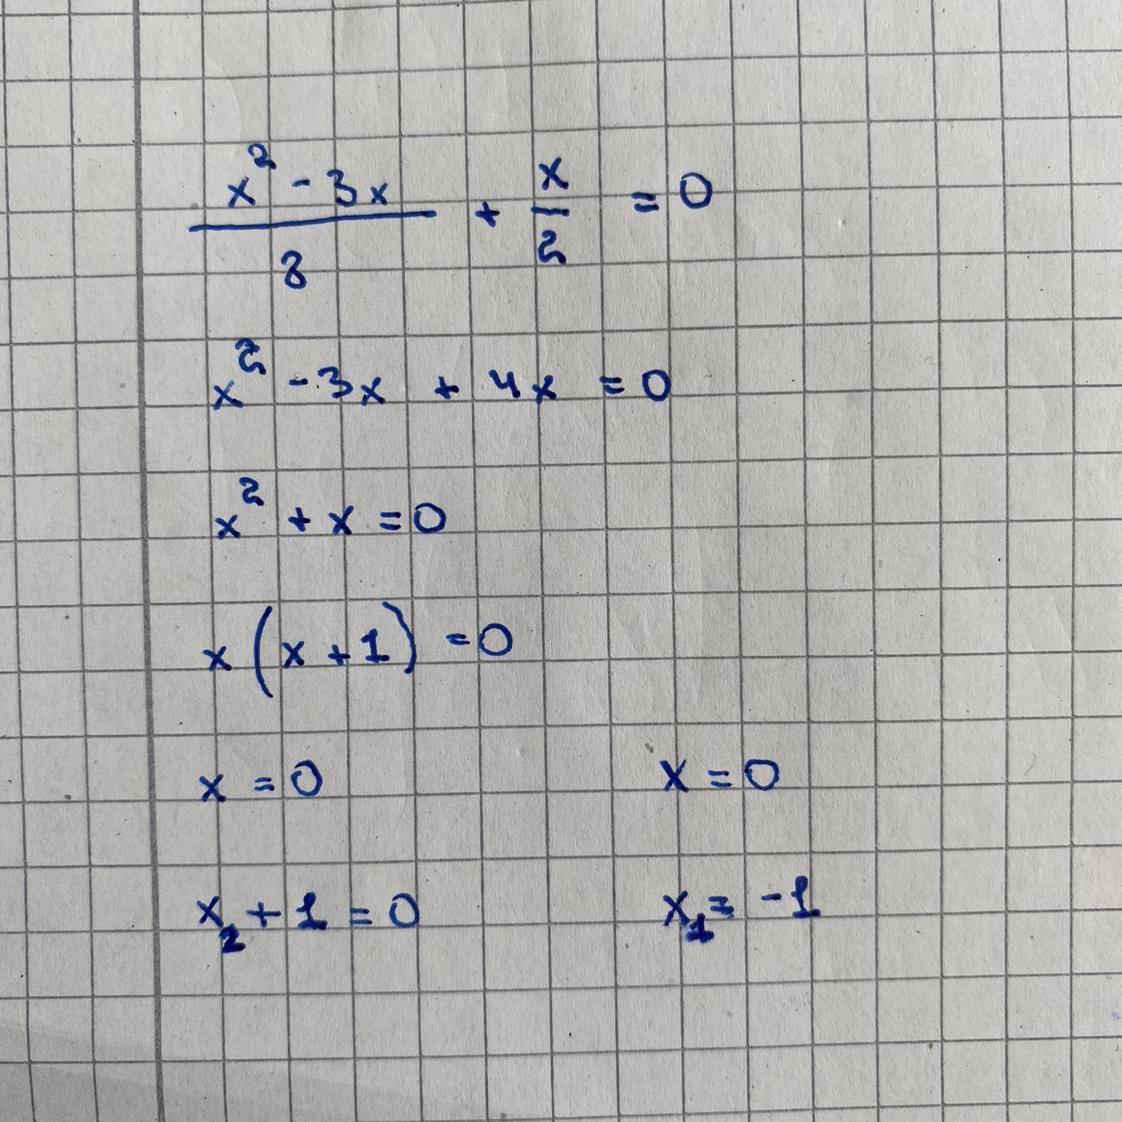 (x² - 3x)/8 + x/2 = 0
x² - 3x + 4x = 0
x² + x = 0
x(x + 1) = 0
x = 0 x = 0
x₂ + 1 = 0 x₁ = -1